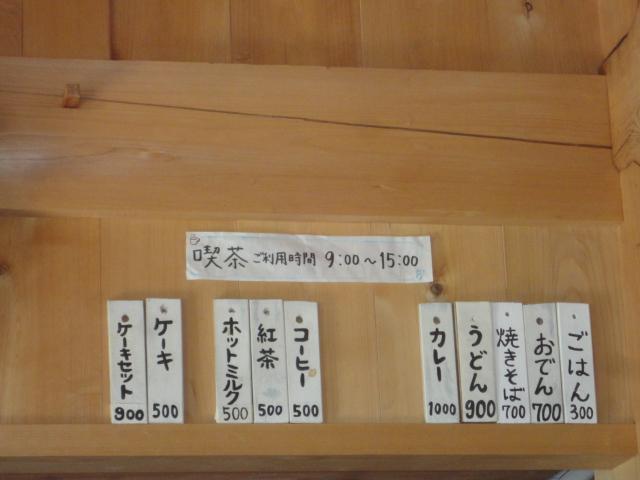 喫茶 ご利用時間 9:00～15:00
ごはん 300
おでん 700
焼きそば 700
うどん 900
カレー 1000
コーヒー 500
紅茶 500
ホットミルク 500
ケーキ 500
ケーキセット 900